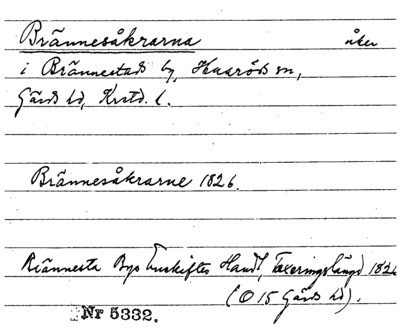 Brännesåkrarna åker
i Brännestads by, Huaröds sn,
Gärds hd, Krstd. l.
Brännesåkrarne 1826.
Brännesta Bys Enskiftes Handl, Taxeringslängd 1826
(O 15 Gärds hd).
Nr 5332.